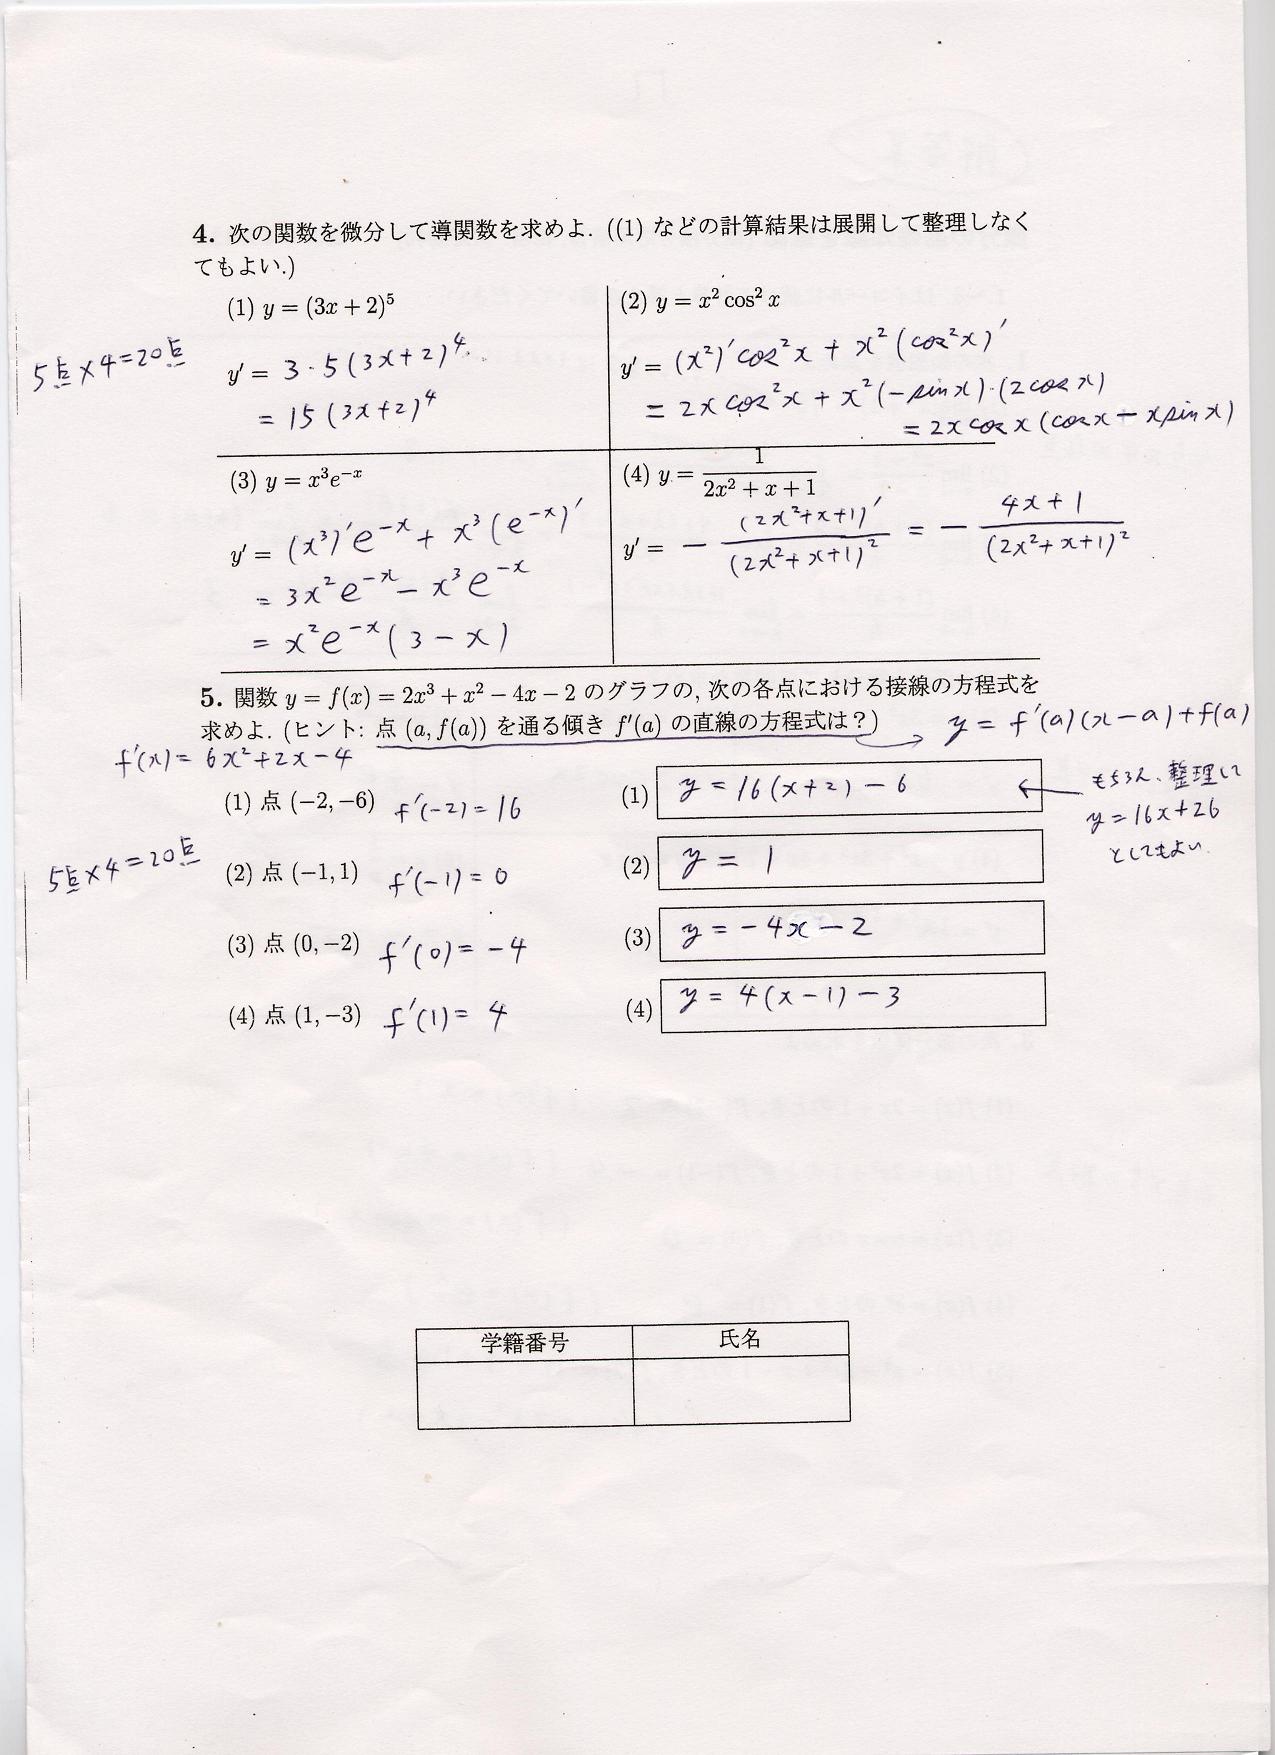 4. 次の関数を微分して導関数を求めよ. ((1) などの計算結果は展開して整理しなく
てもよい.)
(1) y = (3x + 2)^5
y′ = 3・5(3x+2)^4
= 15(3x+2)^4
(2) y = x² cos² x
y′ = (x²)′cos²x + x²(cos²x)′
= 2x cos²x + x²(−sin x)・(2cos x)
= 2x cos x (cos x − x sin x)
5点×4=20点
(3) y = x³e^{−x}
y′ = (x³)′e^{−x} + x³(e^{−x})′
= 3x²e^{−x} − x³e^{−x}
= x²e^{−x}(3 − x)
(4) y = 1/(2x² + x + 1)
y′ = − (2x²+x+1)′/(2x²+x+1)² = − (4x+1)/(2x²+x+1)²
5. 関数 y = f(x) = 2x³ + x² − 4x − 2 のグラフの, 次の各点における接線の方程式を
求めよ. (ヒント: 点 (a, f(a)) を通る傾き f′(a) の直線の方程式は？) y = f′(a)(x−a)+f(a)
f′(x) = 6x²+2x−4
(1) 点 (−2, −6) f′(−2) = 16 (1) y = 16(x+2) − 6
もちろん、整理して
y = 16x+26
としてもよい.
5点×4=20点
(2) 点 (−1, 1) f′(−1) = 0 (2) y = 1
(3) 点 (0, −2) f′(0) = −4 (3) y = −4x − 2
(4) 点 (1, −3) f′(1) = 4 (4) y = 4(x−1) − 3
学籍番号 氏名